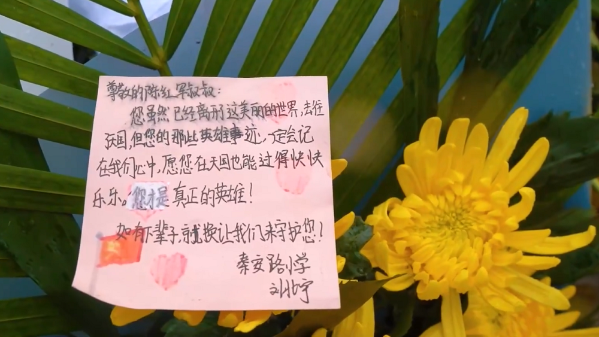 尊敬的陈红军叔叔:
您虽然已经离开这美丽的世界,去往
天国,但您的那些英雄事迹,一定会记
在我们心中,愿您在天国也能过得快快
乐乐。您才是真正的英雄!
如有下辈子,就换让我们来守护您!
秦安路小学